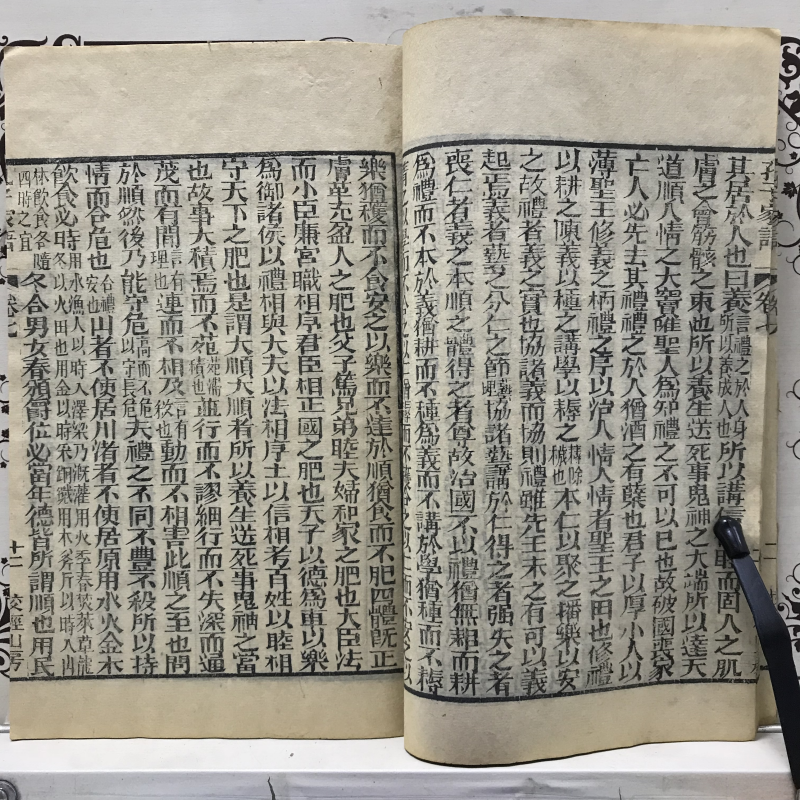 孔子家語 卷七
其居於人也曰養信禮之於人身所以養成人也所以講信 而固人之肌
膚之會筋骸之束也所以養生送死事鬼神之大端所以達天
道順人情之大竇唯聖人為知禮之不可以已也故破國喪家
亡人必先去其禮禮之於人猶酒之有糵也君子以厚小人以
薄聖王修義之柄禮之序以治人情人情者聖王之田也修禮
以耕之陳義以種之講學以耨之耨除穢也本仁以聚之播樂以安
之故禮者義之實也協諸義而協則禮雖先王未之有可以義
起焉義者藝之分仁之節協諸藝講於仁得之者强失之者
喪仁者義之本順之體得之者尊故治國不以禮猶無耜而耕
為禮而不本於義猶耕而不種為義而不講於學猶種而不耨
樂猶穫而不食安之以樂而不達於順猶食而不肥四體既正
膚革充盈人之肥也父子篤兄弟睦夫婦和家之肥也大臣法
而小臣廉官職相序君臣相正國之肥也天子以德為車以樂
為御諸侯以禮相與大夫以法相序士以信相考百姓以睦相
守天下之肥也是謂大順大順者所以養生送死事鬼神之常
也故事大積焉而不苑苑滯積也並行而不謬細行而不失深而通
茂而有間言有理也連而不相及言有敘也動而不相害此順之至也明
於順然後乃能守危高而不危以守長危夫禮之不同不豐不殺所以持
情而合危也合禮安也山者不使居川渚者不使居原用水火金木
飲食必時用水漁人以時入澤梁乃溉灌用火季春焚萊草 冬以火田也用金以時采銅鐵用木斧斤以時入山
林飲食各隨四時之宜冬合男女春頒爵位必當年德皆所謂順也用民
孔子家語 卷七 十二 校經山房